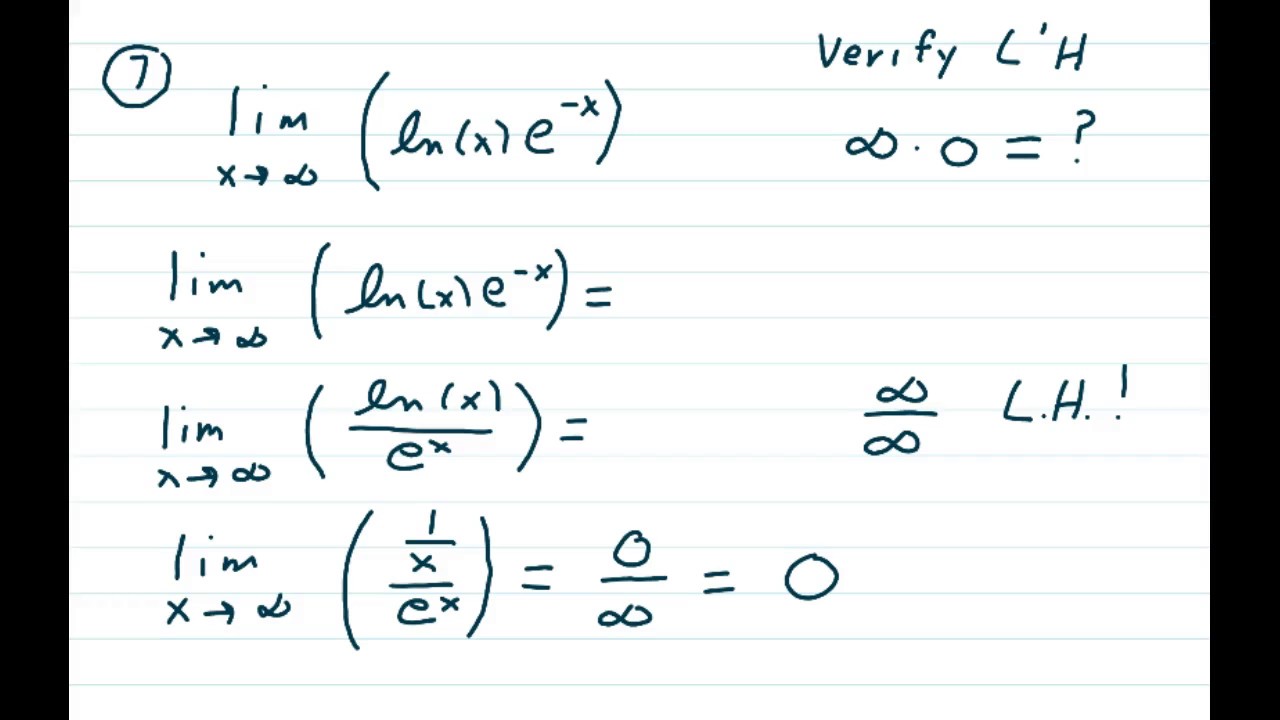 ⑦ lim x→∞ (ln(x) e^{-x}) Verify L'H
∞ · 0 = ?
lim x→∞ (ln(x) e^{-x}) =
lim x→∞ (ln(x) / e^x) = ∞/∞ L.H.!
lim x→∞ ((1/x) / e^x) = 0/∞ = 0